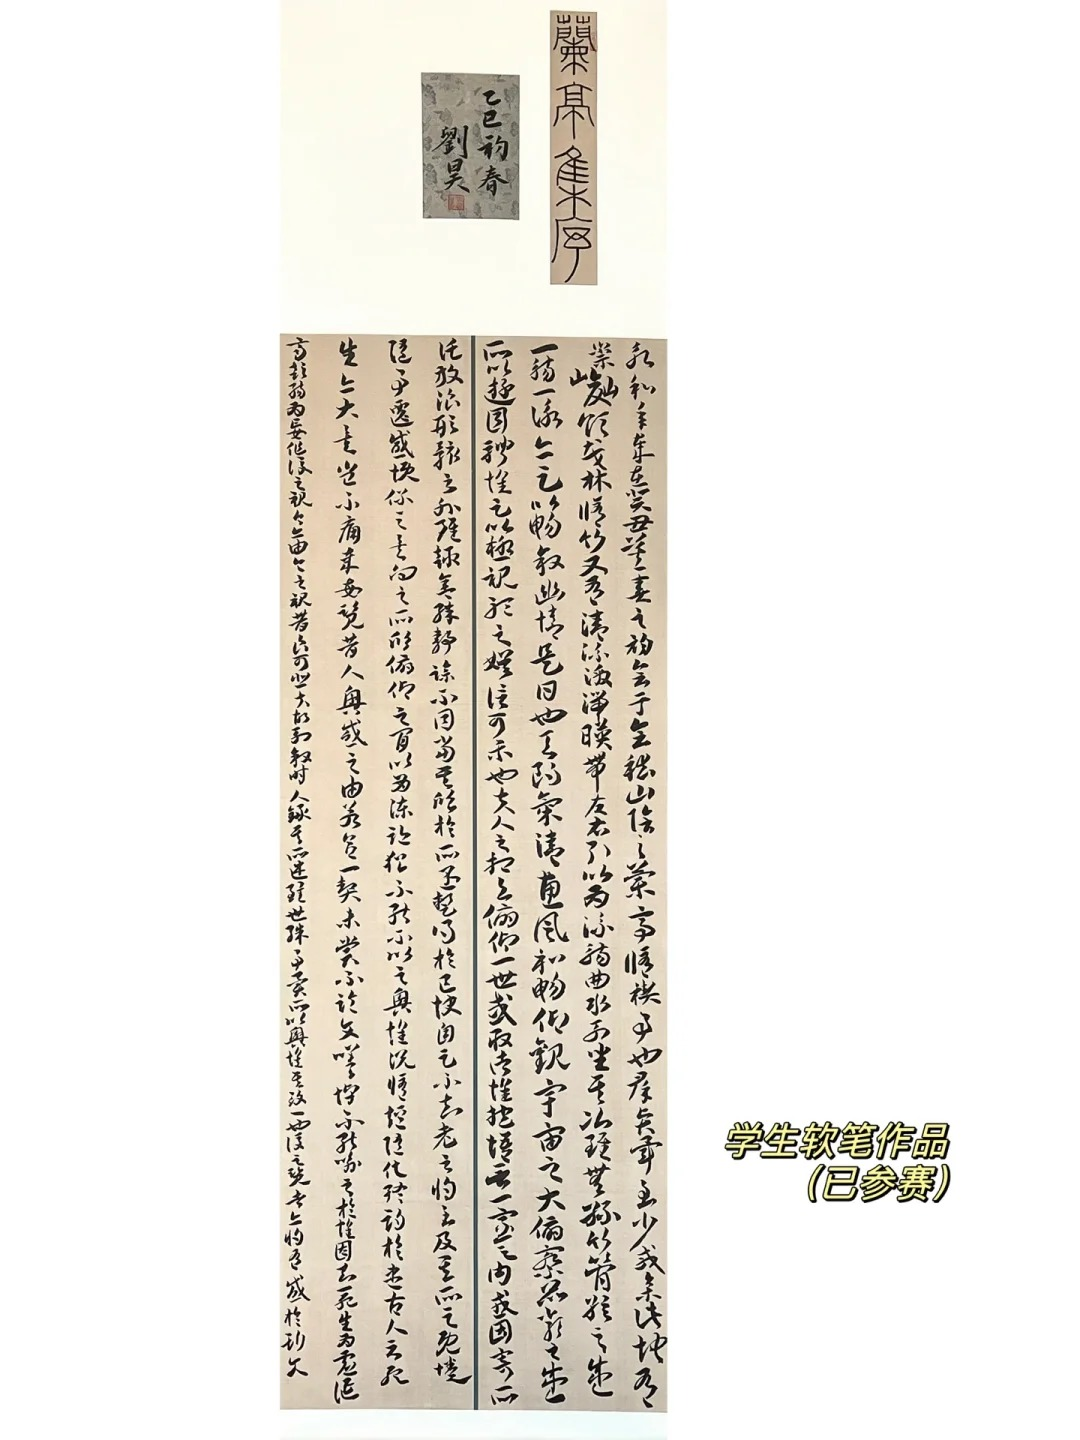 蘭亭集序
乙巳初春
劉昊
永和九年歲在癸丑暮春之初會于會稽山陰之蘭亭脩禊事也群賢畢至少長咸集此地有
崇山峻領茂林脩竹又有清流激湍暎帶左右引以為流觴曲水列坐其次雖無絲竹管絃之盛
一觴一詠亦足以暢敘幽情是日也天朗氣清惠風和暢仰觀宇宙之大俯察品類之盛
所以遊目騁懷足以極視聽之娛信可樂也夫人之相與俯仰一世或取諸懷抱悟言一室之內或因寄所
託放浪形骸之外雖趣舍殊靜躁不同當其欣於所遇暫得於己快自足不知老之將至及其所之既惓
隨事遷感慨係之矣向之所欣俯仰之間以為陳迹猶不能不以之興懷況脩短隨化終期於盡古人云死
生亦大矣豈不痛哉每覽昔人興感之由若合一契未嘗不臨文嗟悼不能喻之於懷固知一死生為虛誕
齊彭殤為妄作後之視今亦由今之視昔悲夫故列敘時人錄其所述雖世殊事異所以興懷其致一也後之覽者亦將有感於斯文
学生软笔作品
(已参赛)